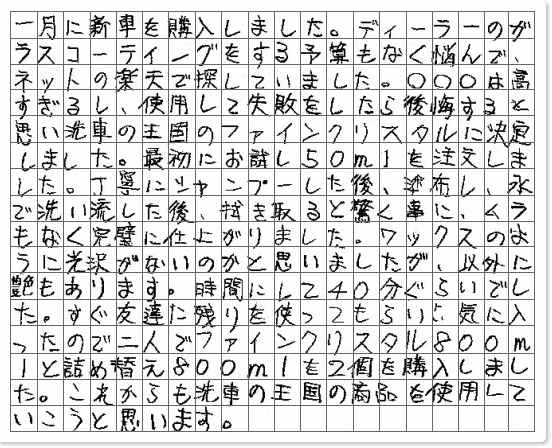 一月に新車を購入しました。ディーラーのガ
ラスコーティングをする予算もなく悩んで、
ネットの楽天で探していました。〇〇〇は高
すぎるし、使用して失敗をしたら後悔すると
思い洗車の王国のファインクリスタルに決定
しました。最初にお試し50mlを注文しま
した。丁寧にシャンプーした後、塗布し、水
で洗い流した後、拭き取ると驚く事に、ムラ
もなく完璧に仕上がりました。ワックスのよ
うに光沢がないのかと思いましたが、以外に
艶もあります。時間にして40分ぐらいでし
た。すぐ友達に残りを使ってもらい、気に入
ったので二人でファインクリスタル800m
lと詰め替え800mlを2個を購入しまし
た。これからも洗車の王国の商品を使用して
いこうと思います。